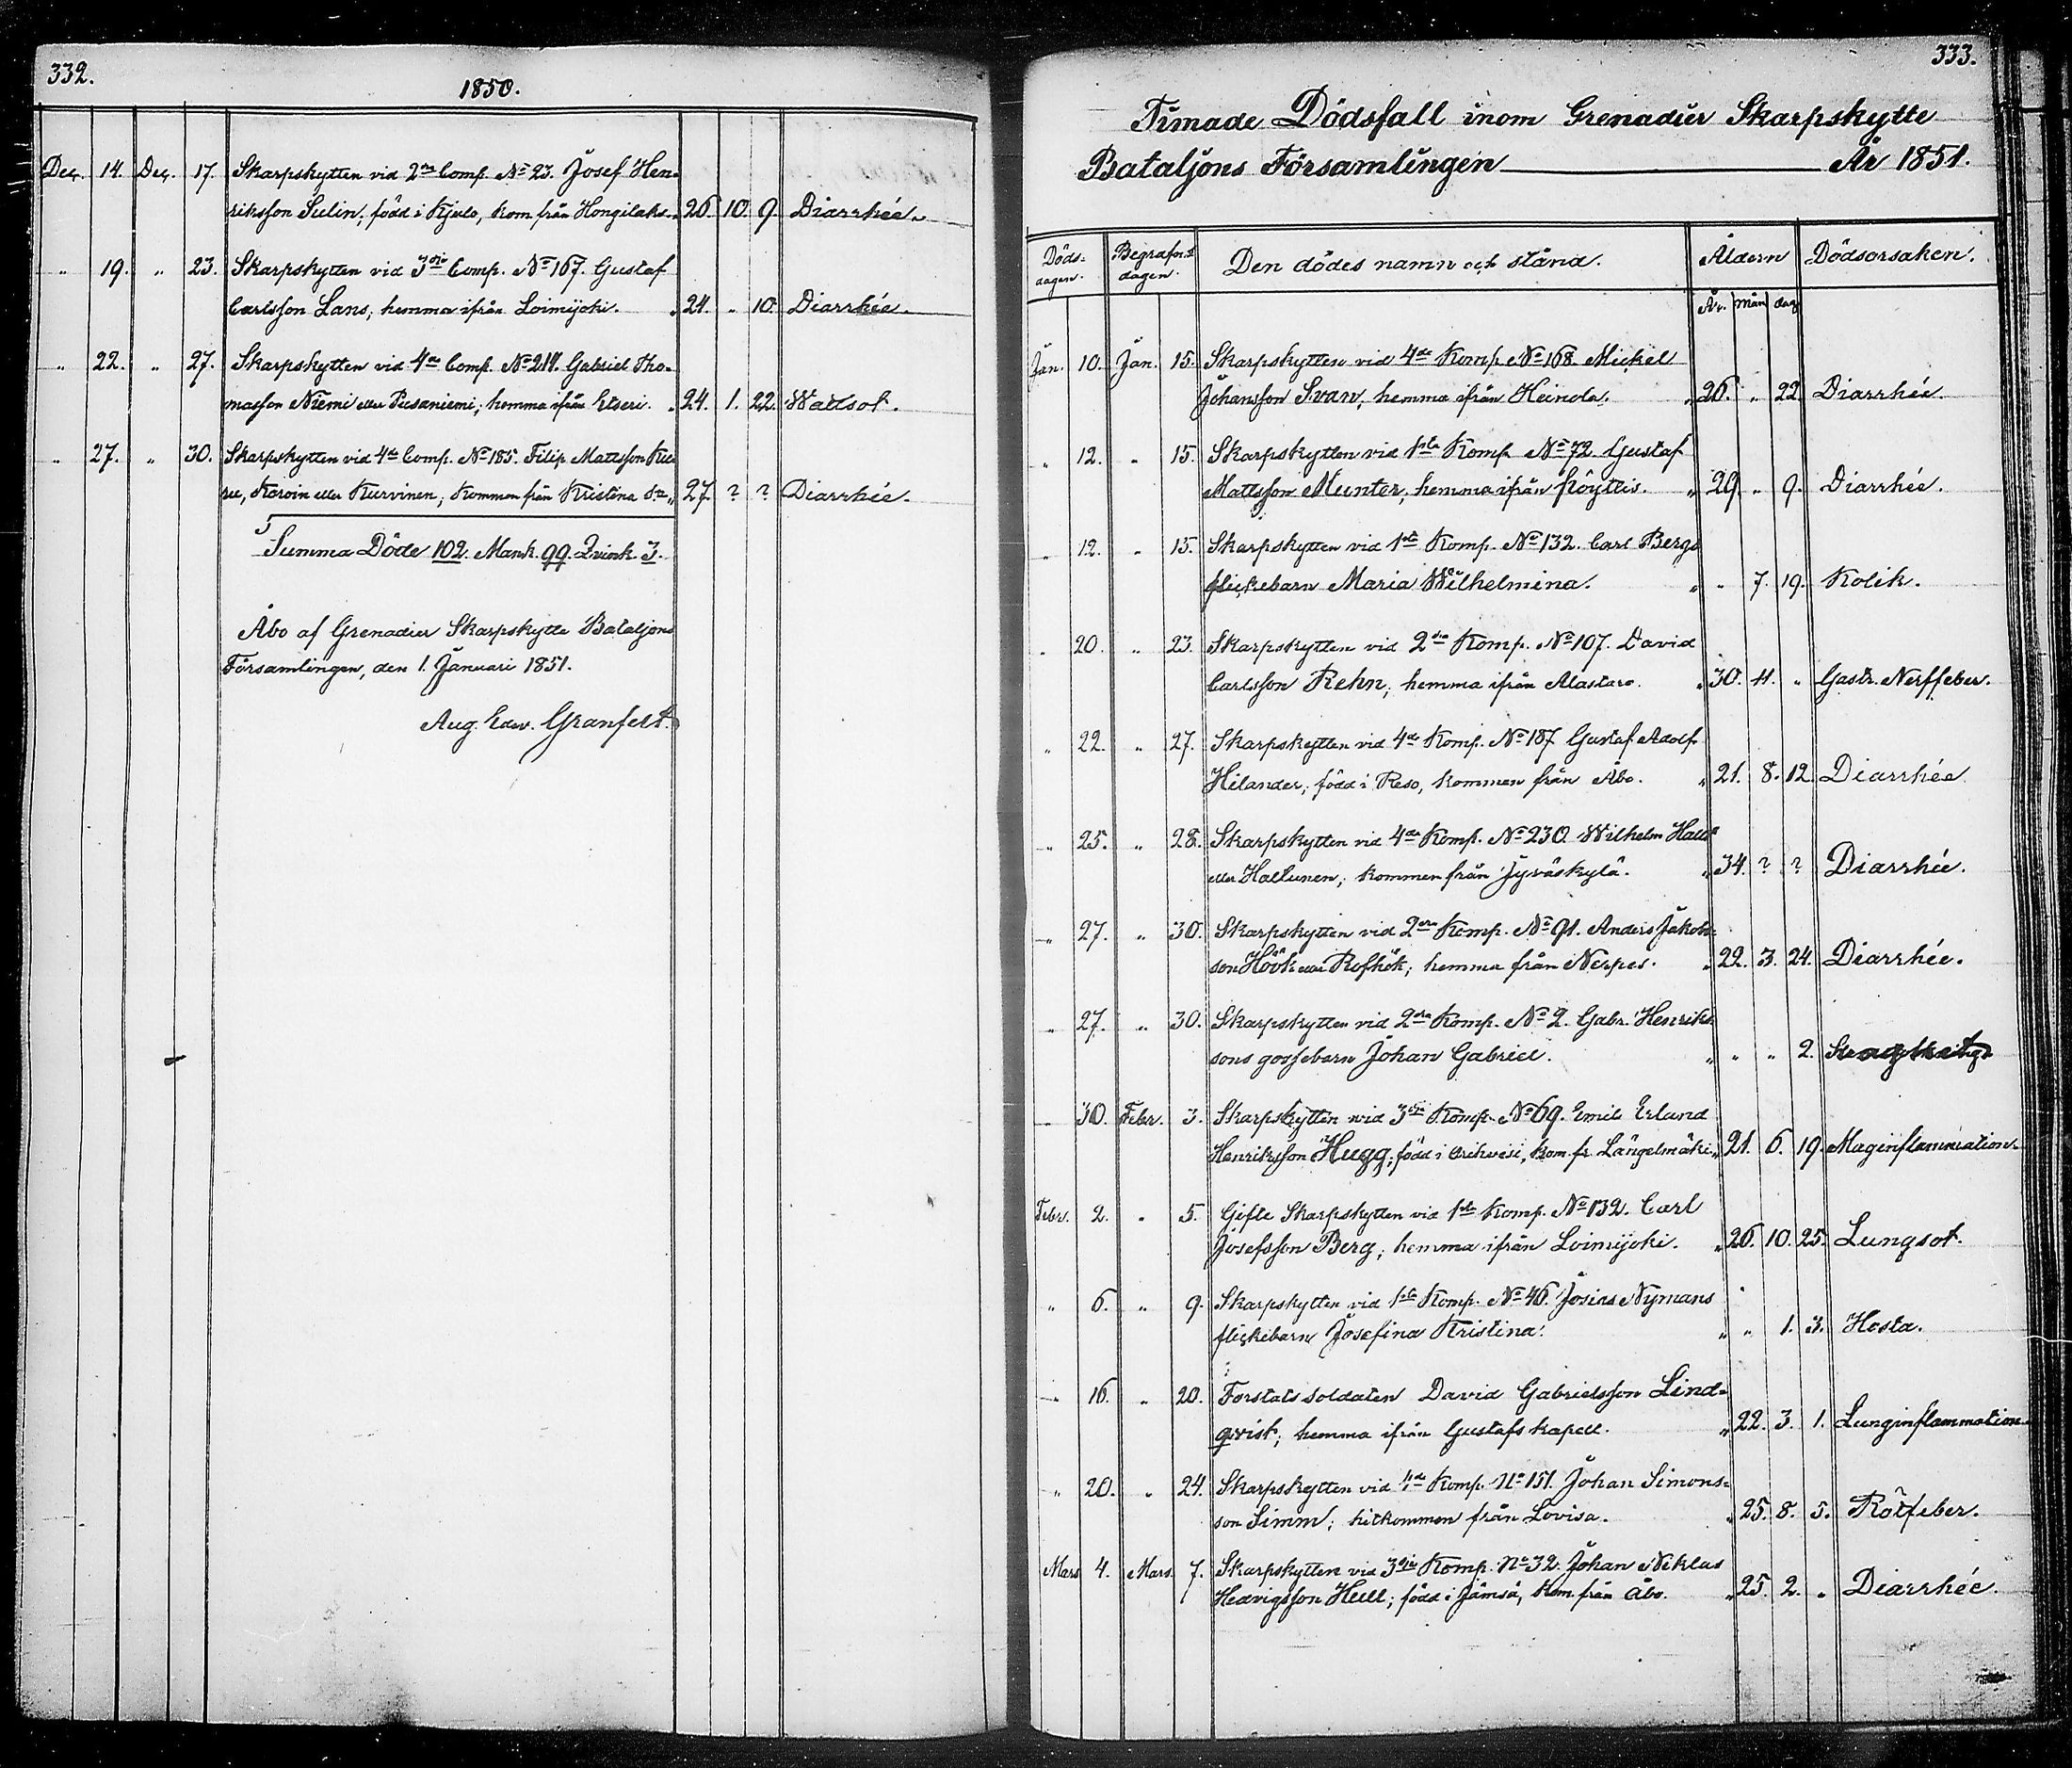 332.
1850.
Dec. 14. Dec. 17. Skarpskytten vid 2dra Comp. No 23. Josef Hen-
riksson Sulin, född i Kjulo, kom från Hongilaks. 26. 10. 9. Diarrhée.
" 19. " 23. Skarpskytten vid 3dje Comp. No 167. Gustaf
Carlsson Lans, hemma ifrån Loimijoki. " 24. " 10. Diarrhée.
" 22. " 27. Skarpskytten vid 4de Comp. No 214. Gabriel Tho-
masson Niemi eller Pusaniemi; hemma ifrån Etseri. " 24. 1. 22. Wattsot.
" 27. " 30. Skarpskytten vid 4de Comp. No 185. Filip Mattsson
Karvin eller Kurvinen; kommen från Kristina 27. ? ? Diarrhée.
Summa Döde 102. Mank. 99. Qvink. 3.
Åbo af Grenadier Skarpskytte Bataljons
Församlingen, den 1. Januari 1851.
Aug. Edv. Granfelt.
333.
Timade Dödsfall inom Grenadier Skarpskytte
Bataljons Församlingen År 1851.
Döds- Begrafn.s Den dödes namn och stånd. Åldern Dödsorsaken.
dagen. dagen.
År. mån dag
Jan. 10. Jan. 15. Skarpskytten vid 4de Komp. No 168. Mickel
Johansson Svan, hemma ifrån Heinola. " 26. " 22. Diarrhée.
" 12. " 15. Skarpskytten vid 1sta Komp. No 72. Gustaf
Mattsson Munter, hemma ifrån Pöyttis. " 29. " 9. Diarrhée.
" 12. " 15. Skarpskytten vid 1sta Komp. No 132. Carl Bergs
flickebarn Maria Wilhelmina. " " 7. 19. Kolik.
" 20. " 23. Skarpskytten vid 2dra Komp. No 107. David
Carlsson Rehn, hemma ifrån Alastaro. " 30. 11. " Gastr. Nerffeber.
" 22. " 27. Skarpskytten vid 4de Komp. No 187 Gustaf Adolf
Hilander, född i Reso, kommen från Åbo. " 21. 8. 12. Diarrhée
" 25. " 28. Skarpskytten vid 4de Komp. No 230. Wilhelm
eller Hallunen, kommen från Jyväskylä. " 34. ? ? Diarrhée.
" 27. " 30. Skarpskytten vid 2dra Komp. No 91. Anders Jakobs-
son Höök eller Rofhök, hemma från Nerpes. " 22. 3. 24. Diarrhée.
" 27. " 30. Skarpskytten vid 2dra Komp. No 2. Gabr. Henriks-
sons gossebarn Johan Gabriel. " " " 2.
" 30. Febr. 3. Skarpskytten vid 3dje Komp. No 69. Emil Erland
Henriksson Hugg, född i Orihvesi, kom. fr. Längelmäki " 21. 6. 19. Maginflammation.
Febr. 2. " 5. Gifte Skarpskytten vid 1sta Komp. No 132. Carl
Josefsson Berg, hemma ifrån Loimijoki. " 26. 10. 25. Lungsot.
" 6. " 9. Skarpskytten vid 1sta Komp. No 46. Josias Nymans
flickebarn Josefina Kristina. " " 1. 3. Hosta.
" 16. " 20. Forstats soldaten David Gabrielsson Lind-
qvist, hemma ifrån Gustafs kapell. " 22. 3. 1. Lunginflammation
" 20. " 24. Skarpskytten vid 4de Komp. No 151. Johan Simons-
son Simm; hitkommen från Lovisa. " 25. 8. 5. Rötfeber.
Mars 4. Mars. 7. Skarpskytten vid 3dje Komp. No 32. Johan Niklas
Hedvigsson Hell; född i Jämsä, kom. från Åbo. " 25. 2. " Diarrhée